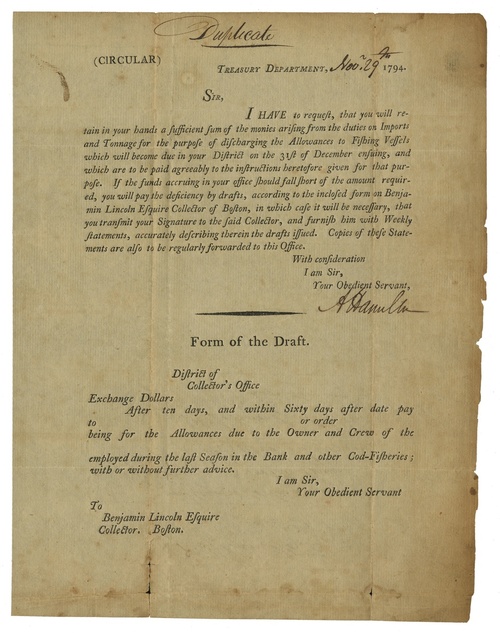 Duplicate
(CIRCULAR)
TREASURY DEPARTMENT, Novr. 29th 1794.
SIR,
I HAVE to requeſt, that you will re-
tain in your hands a ſufficient ſum of the monies ariſing from the duties on Imports
and Tonnage for the purpoſe of diſcharging the Allowances to Fiſhing Veſſels
which will become due in your Diſtrict on the 31ſt of December enſuing, and
which are to be paid agreeably to the inſtructions heretofore given for that pur-
poſe. If the funds accruing in your office ſhould fall ſhort of the amount requir-
ed, you will pay the deficiency by drafts, according to the incloſed form on Benja-
min Lincoln Eſquire Collector of Boſton, in which caſe it will be neceſſary, that
you tranſmit your Signature to the ſaid Collector, and furniſh him with Weekly
ſtatements, accurately deſcribing therein the drafts iſſued. Copies of theſe State-
ments are alſo to be regularly forwarded to this Office.
With conſideration
I am Sir,
Your Obedient Servant,
A Hamilton
Form of the Draft.
Diſtrict of
Collector's Office
Exchange Dollars
After ten days, and within Sixty days after date pay
to or order
being for the Allowances due to the Owner and Crew of the
employed during the laſt Seaſon in the Bank and other Cod-Fiſheries;
with or without further advice.
I am Sir,
Your Obedient Servant
To
Benjamin Lincoln Eſquire
Collector. Boſton.